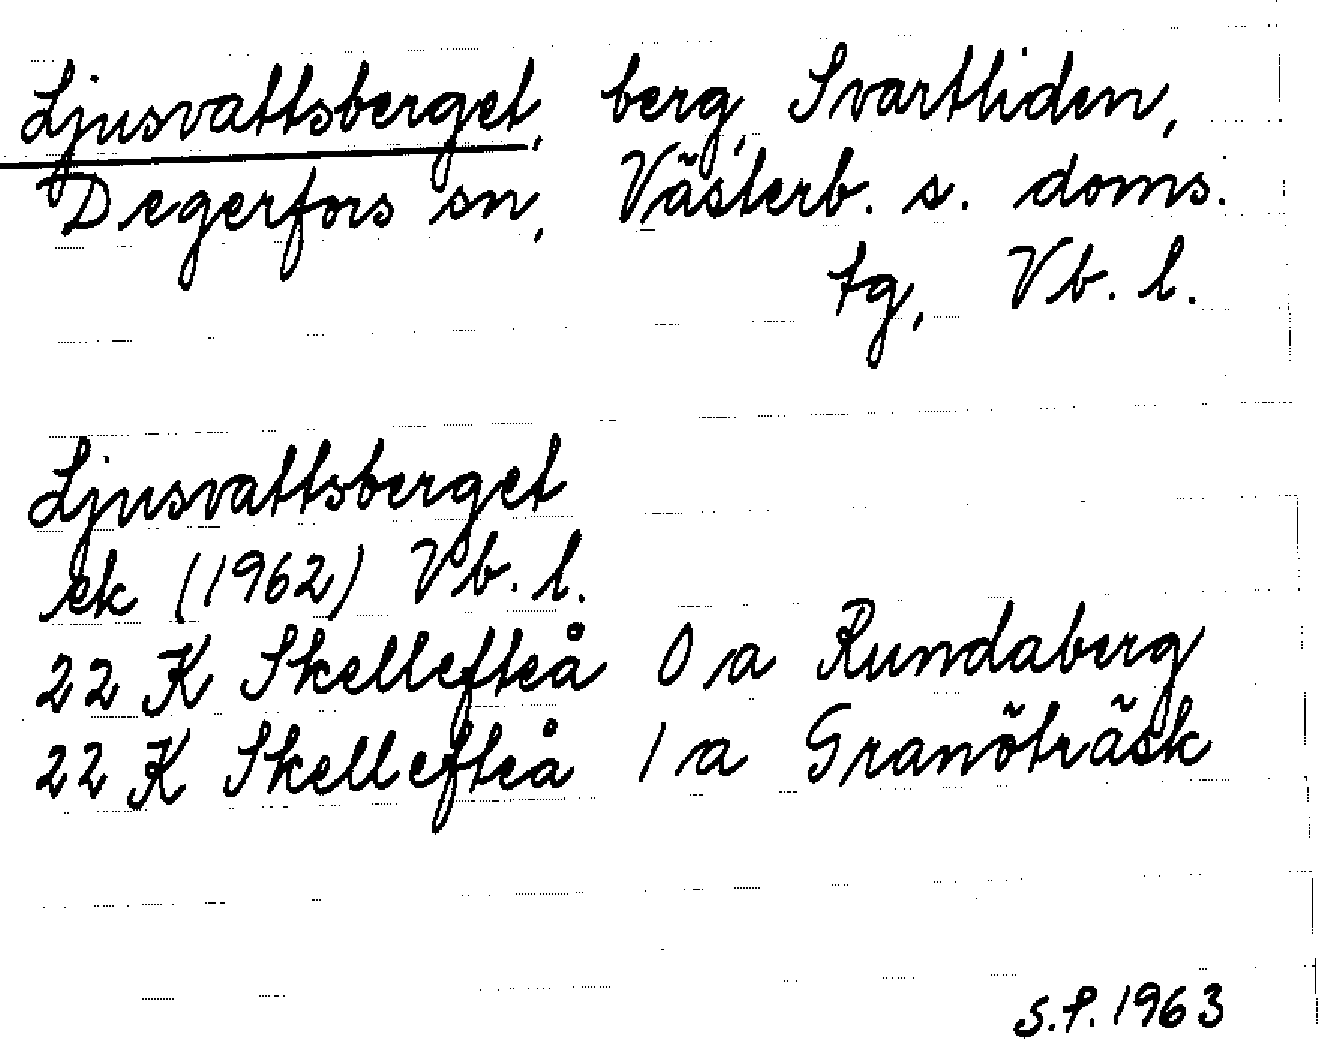 Ljusvattsberget, berg, Svartliden,
Degerfors sn, Västerb. s. doms.
tg, Vb. l.
Ljusvattsberget
ek (1962) Vb. l.
22 K Skellefteå 0 a Rundaberg
22 K Skellefteå 1 a Granöträsk
S.P. 1963